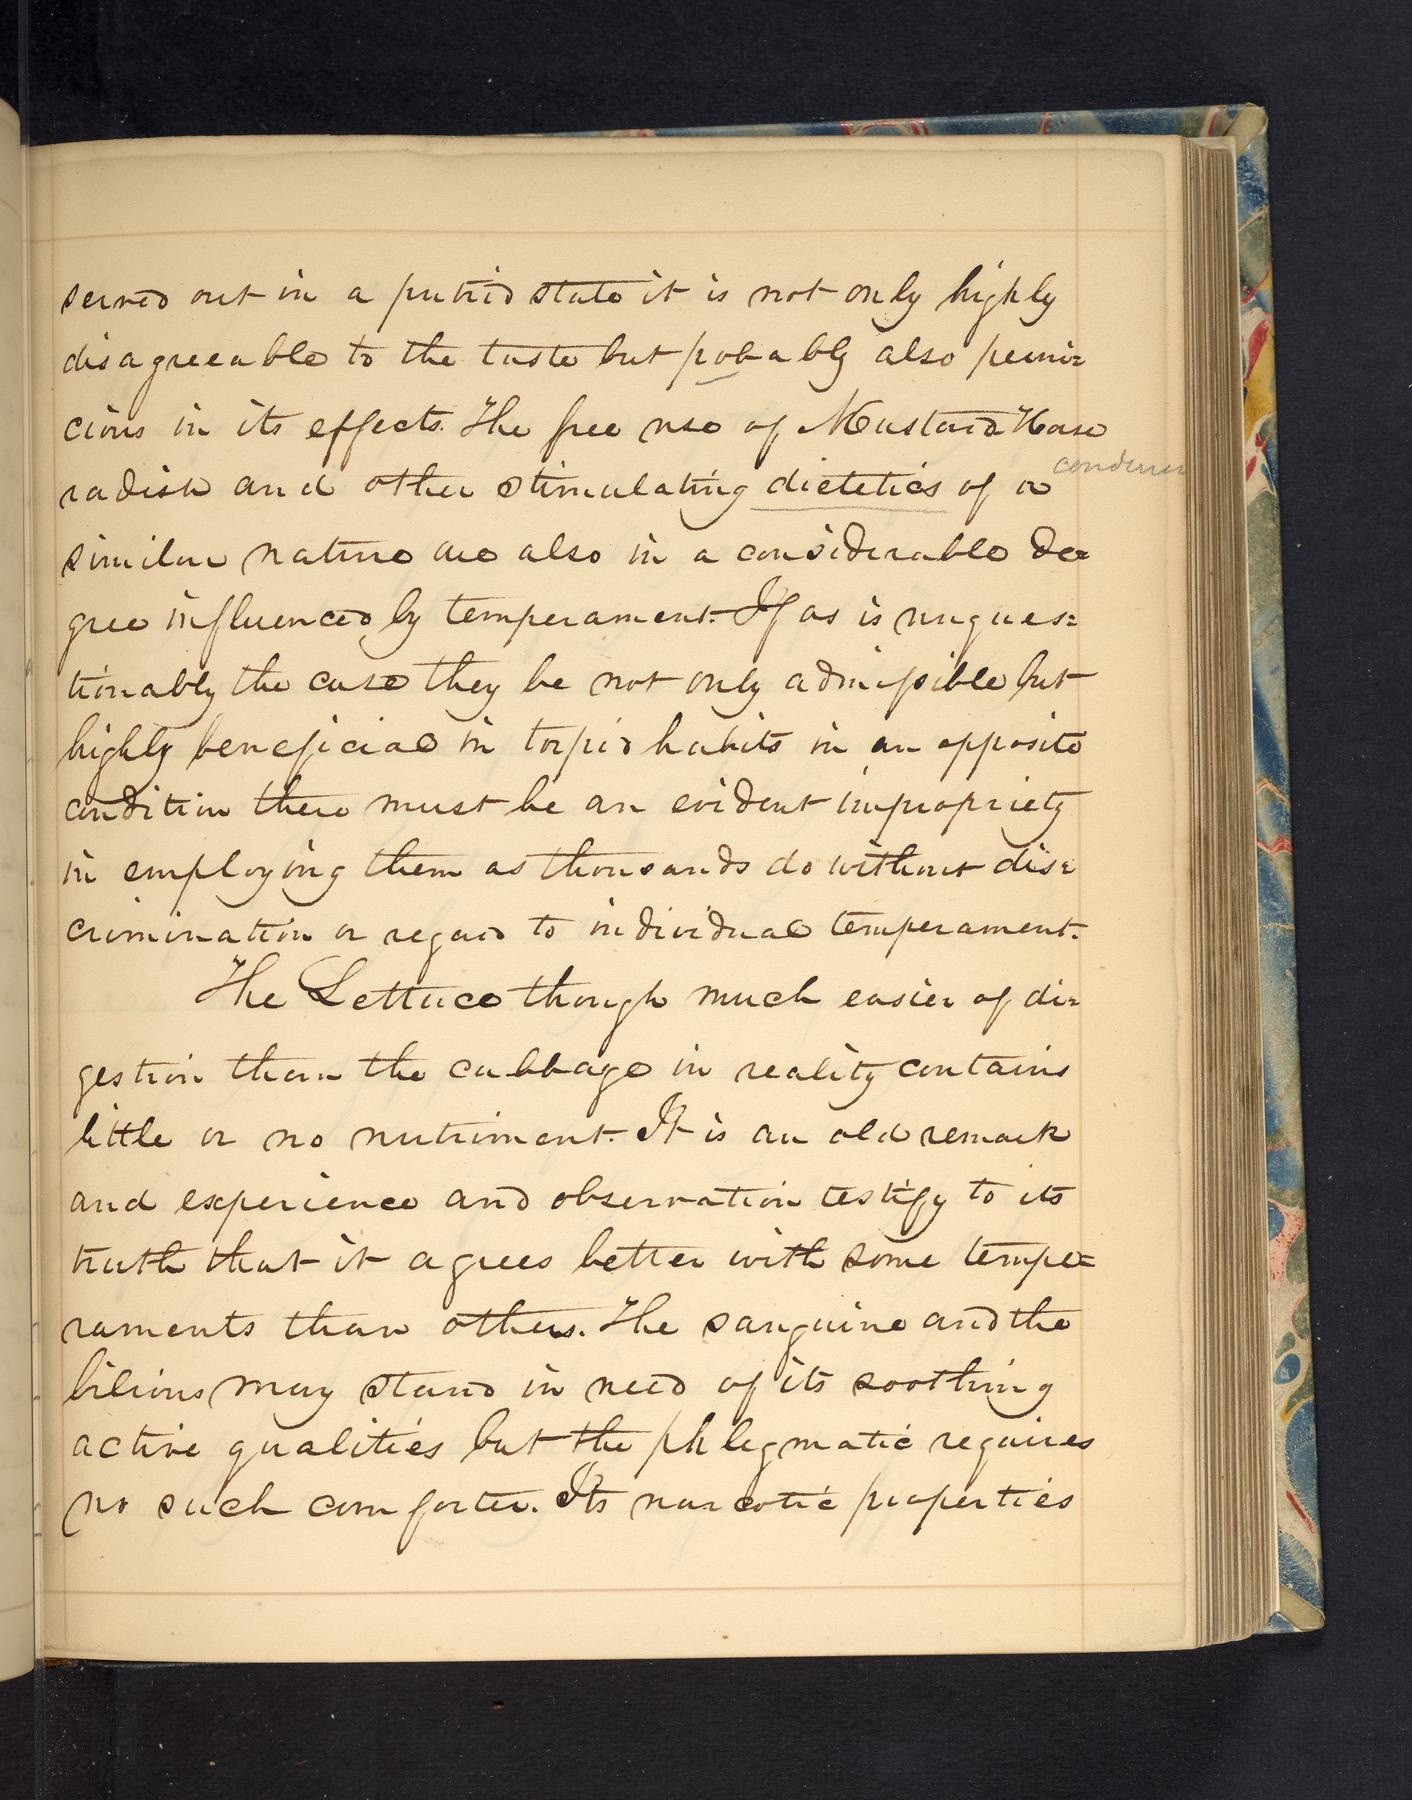 served out in a putrid state it is not only highly
disagreeable to the taste but pobably also perni=
cious in its effects. The free use of Mustard Horse
condimen
radish and other stimulating dietetics of a
similar nature are also in a considerable de=
gree influenced by temperament. If as is unques=
tionably the case they be not only admissible but
highly beneficial in torpid habits in an opposite
condition there must be an evident impropriety
in employing them as thousands do without dis=
crimination or regard to individual temperament.
The Lettuce though much easier of di=
gestion than the cabbage in reality contains
little or no nutriment. It is an old remark
and experience and observation testify to its
truth that it agrees better with some tempe=
raments than others. The sanguine and the
bilious may stand in need of its soothing
active qualities but the phlegmatic requires
no such comforter. Its narcotic properties